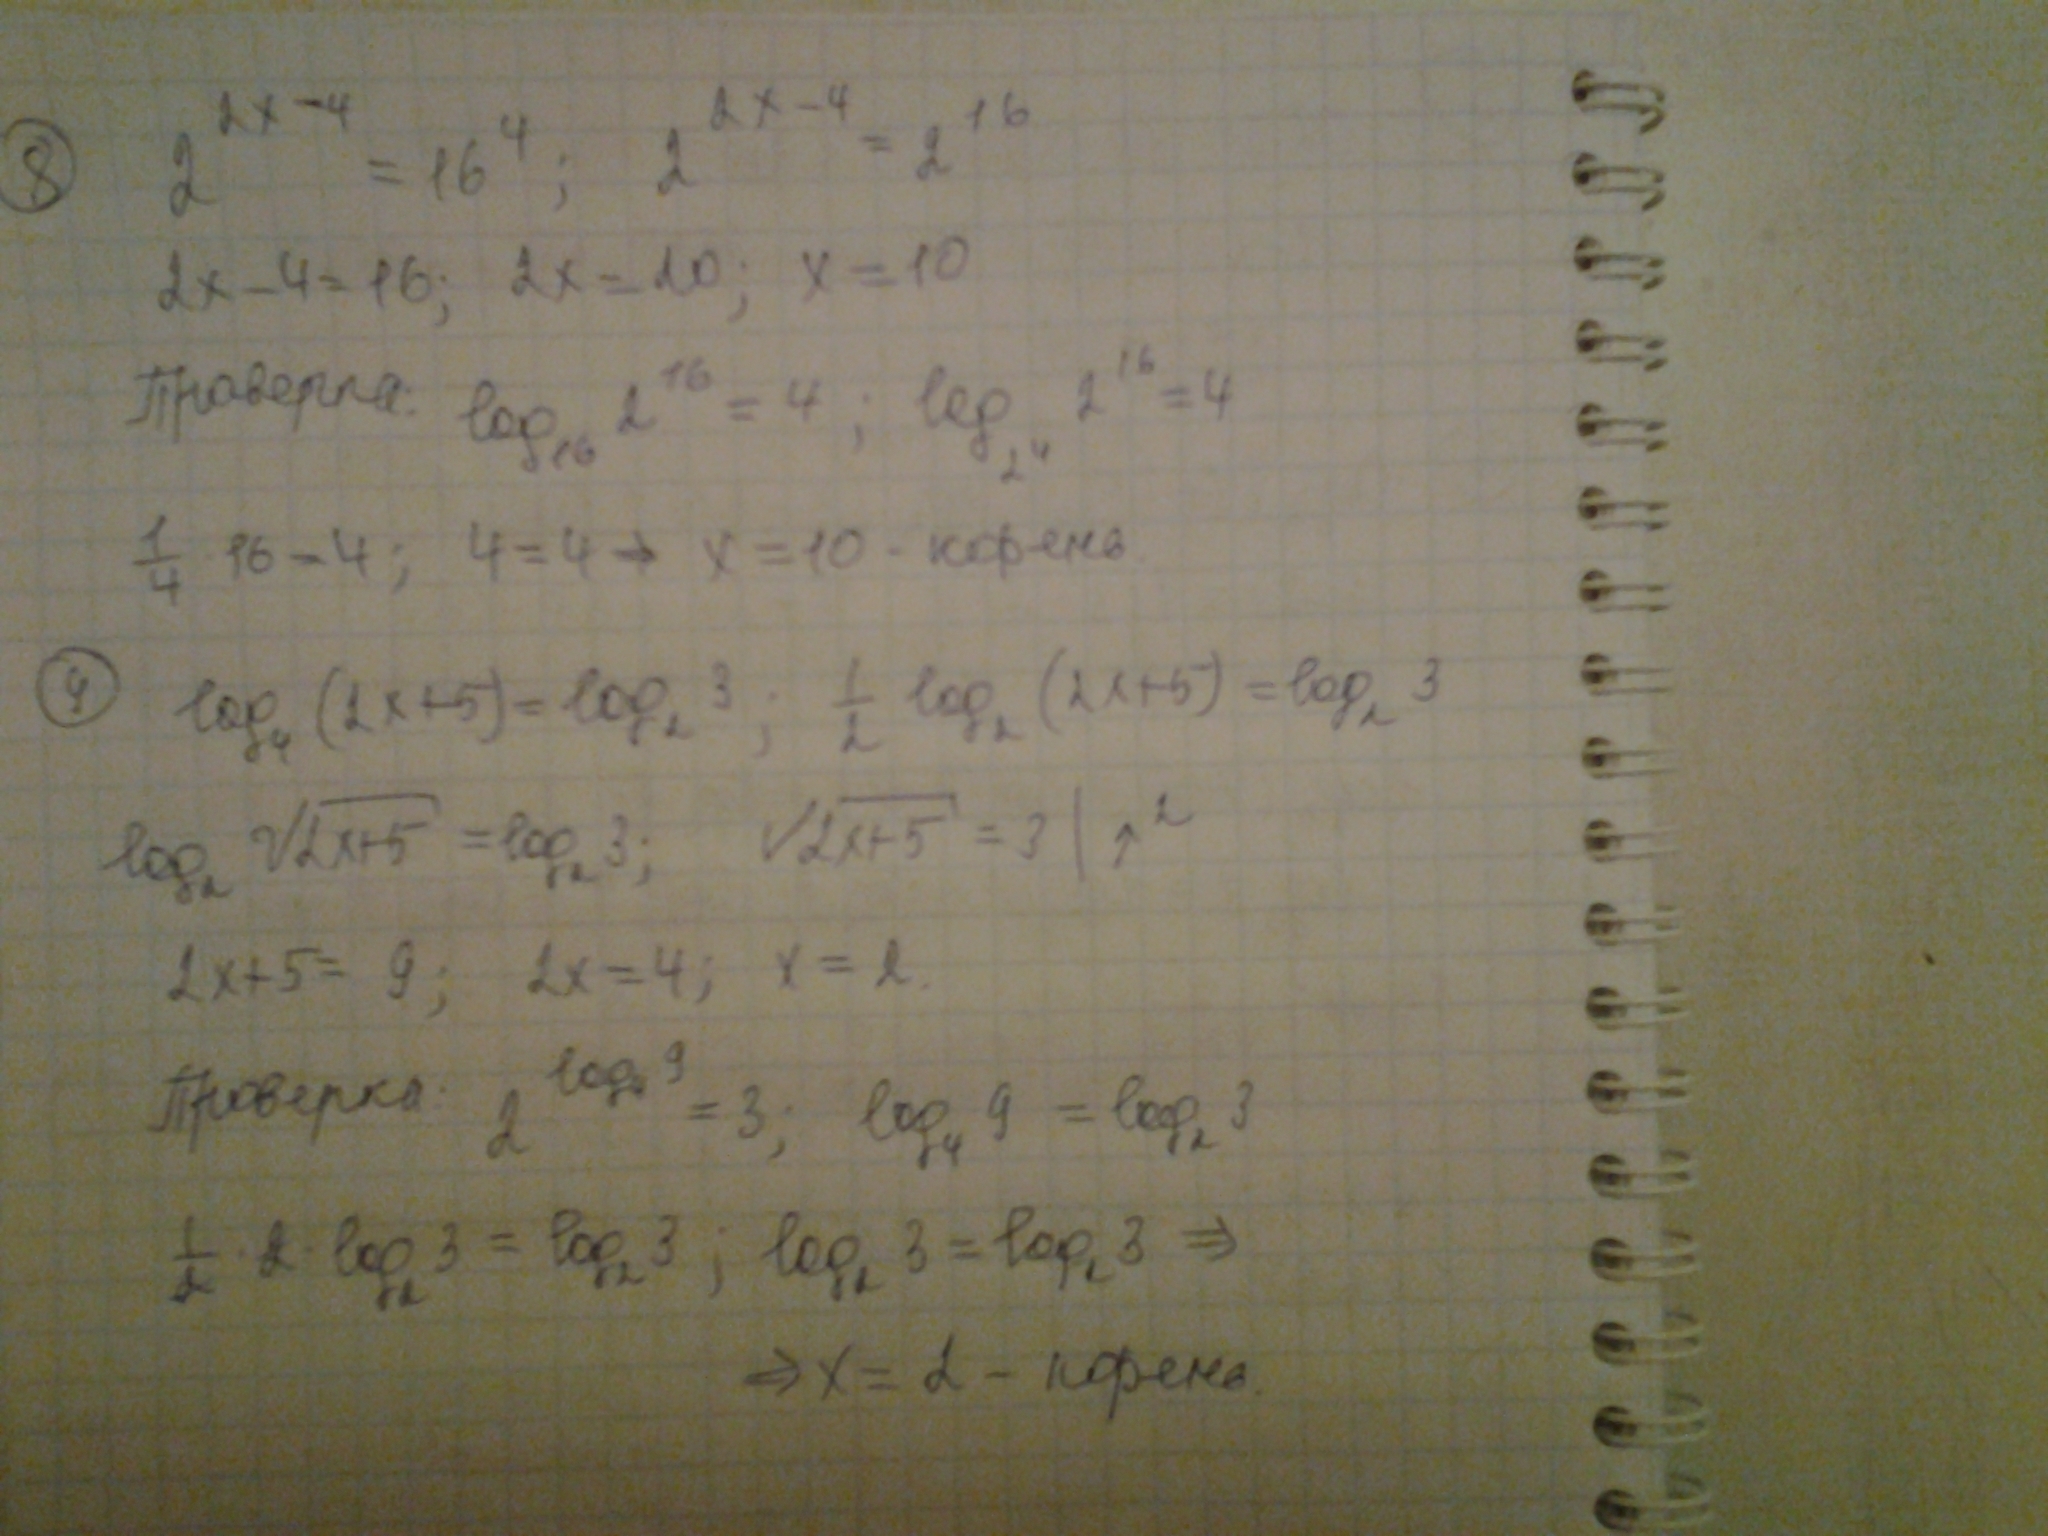 ⑧ 2^{2x-4} = 16^4; 2^{2x-4} = 2^{16}
2x-4=16; 2x=20; x=10
Проверка: log_{16} 2^{16} = 4; log_{2^4} 2^{16} = 4
1/4 · 16 = 4; 4=4 → x=10 - корень
⑨ log_4 (2x+5) = log_2 3; 1/2 log_2 (2x+5) = log_2 3
log_2 √(2x+5) = log_2 3; √(2x+5) = 3 | ↑^2
2x+5= 9; 2x=4; x=2.
Проверка: 2^{log_4 9} = 3; log_4 9 = log_2 3
1/2 · 2 · log_2 3 = log_2 3; log_2 3 = log_2 3 ⇒
⇒ x=2 - корень.